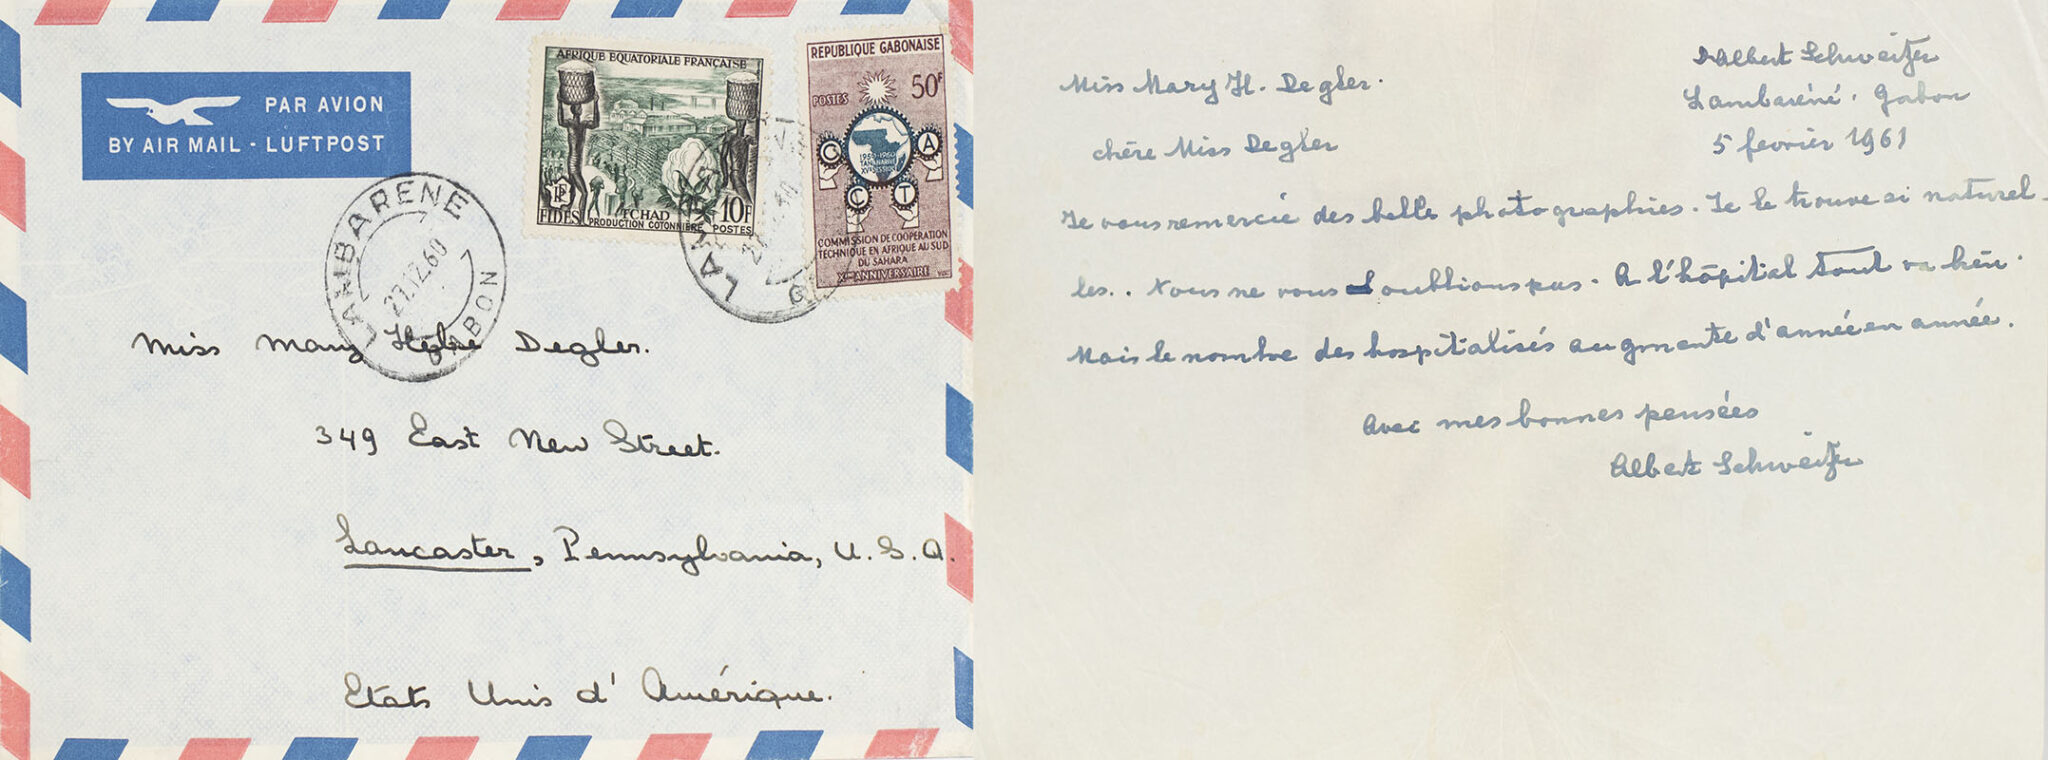 PAR AVION
BY AIR MAIL - LUFTPOST
AFRIQUE EQUATORIALE FRANÇAISE
RF
FIDES
TCHAD
10F
PRODUCTION COTONNIÈRE POSTES
REPUBLIQUE GABONAISE
50F
POSTES
C C T A
1950-1960
TANANARIVE
XVe SESSION
COMMISSION DE COOPERATION
TECHNIQUE EN AFRIQUE AU SUD
DU SAHARA
Xème ANNIVERSAIRE
LAMBARENE
27.12.60
GABON
Miss Mary Degler.
349 East New Street.
Lancaster, Pennsylvania, U.S.A.
Etats Unis d'Amérique.
Albert Schweitzer
Lambaréné. Gabon
5 fevrier 1961
Miss Mary H. Degler.
chère Miss Degler
Je vous remercie des belle photographies. Je le trouve si naturel-
les.. Nous ne vous oublions pas. A l'hôpital tout va bien.
Mais le nombre des hospitalisés augmente d'année en année.
Avec mes bonnes pensées
Albert Schweitzer